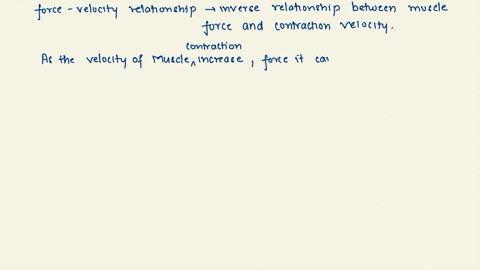 force - velocity relationship → inverse relationship between muscle
force and contraction velocity.
contraction
As the velocity of Muscle ^ increase , force it ca